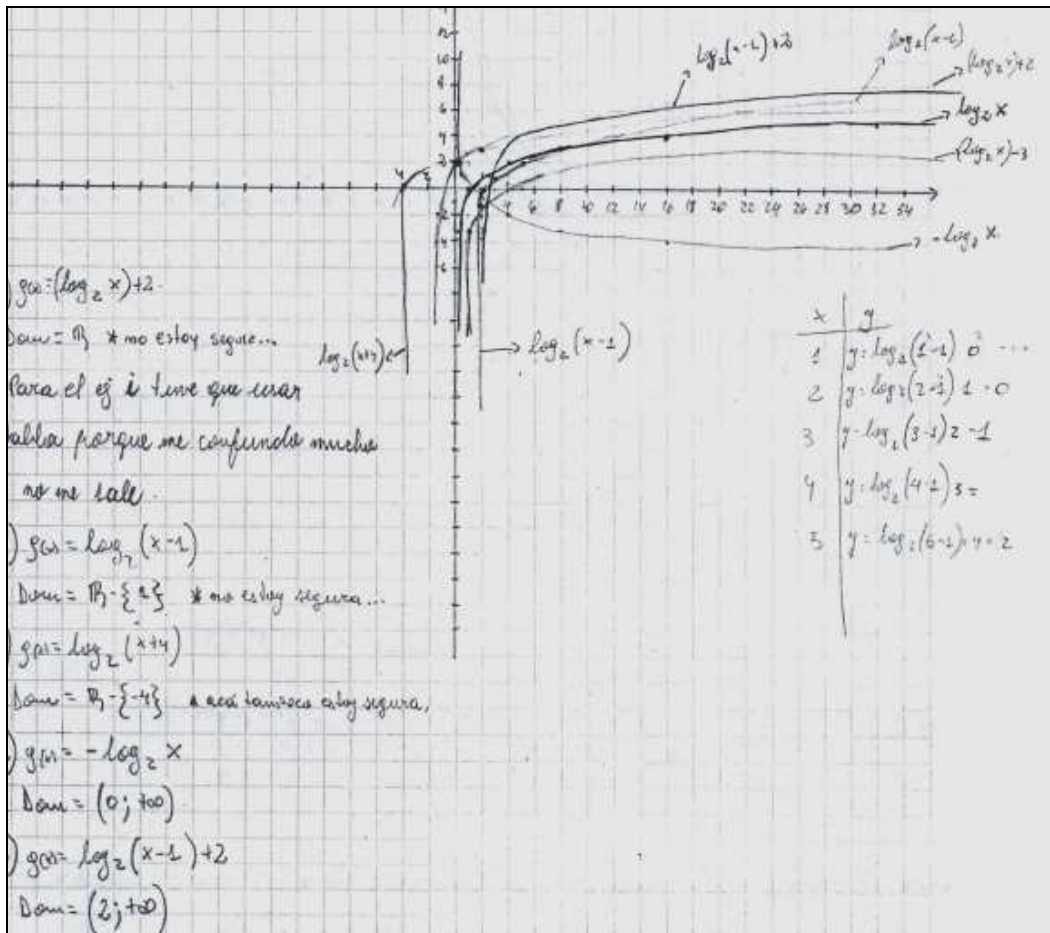 12
10
8
6
4
2
log₂(x-1)+2
log₂(x-1)
(log₂x)+2
log₂ x
(log₂ x)-3
4 6 8 10 12 14 16 18 20 22 24 26 28 30 32 34
-log₂ x
log₂(x+4)
log₂(x-1)
) g(x)=(log₂ x)+2
Dom = ℝ * no estoy segura...
Para el ej i tuve que usar
abla porque me confundo mucho
no me sale.
) g(x)= log₂ (x-1)
Dom = ℝ-{1} * no estoy segura...
) g(x)= log₂ (x+4)
Dom = ℝ-{-4} * acá tampoco estoy segura.
) g(x)= -log₂ x
Dom = (0; +∞)
) g(x)= log₂ (x-1)+2
Dom = (2; +∞)
x y
1 y=log₂(1-1) 0 ...
2 y=log₂(2-1) 1=0
3 y=log₂(3-1) 2=1
4 y=log₂(4-1) 3=
5 y=log₂(5-1)=4=2